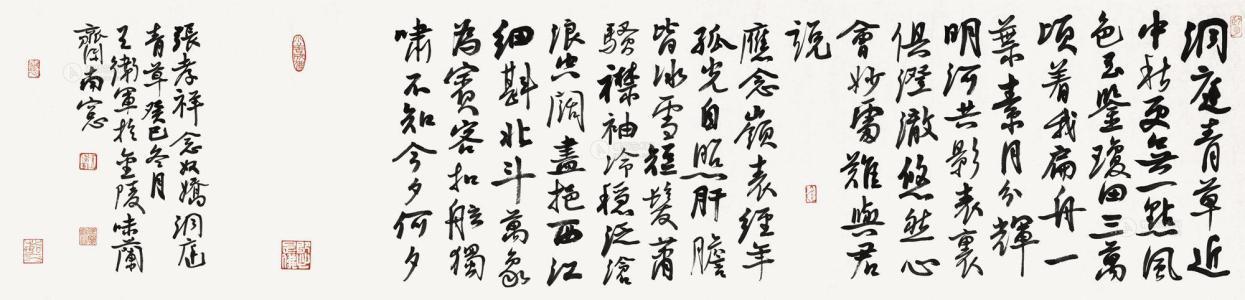 洞庭青草近
中秋更無一點風
色玉鑒瓊田三萬
頃着我扁舟一
葉素月分輝
明河共影表裏
俱澄澈悠然心
會妙處難與君
説
應念嶺表經年
孤光自照肝膽
皆冰雪短髮蕭
騷襟袖冷穩泛滄
浪空闊盡挹西江
細斟北斗萬象
為賓客扣舷獨
嘯不知今夕何夕
張孝祥念奴嬌洞庭
青草癸巳冬月
王衛軍於金陵味蘭
齋南窓